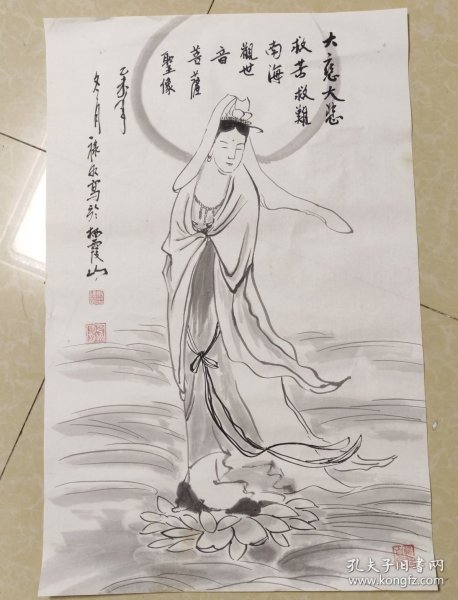 大慈大悲
救苦救難
南海
觀世
音
菩薩
聖像
乙未年
冬月
祿水寫於栖霞山
孔夫子旧书网
www.kongfz.com